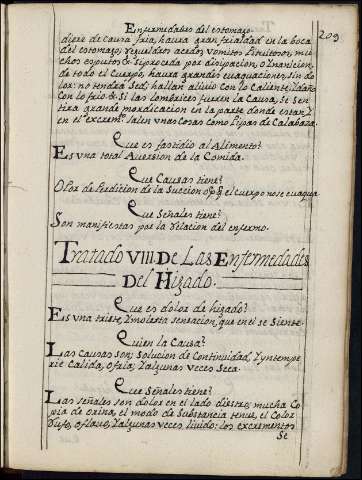 Enfermedades del estomago.
209
diere de causa fria, havra gran frialdad en la boca
del estomago, regueldos acedos, vomitos Pituitosos, mu
chos esputos & si proceda por disipacion, o Inanicion
de todo el Cuerpo, havra grandes evaquaciones, sin do
lor: no tendra Sed; hallan alivio con lo Caliente, i daño
con lo frio &. Si las lombrices fueren la Causa, se sen
tira grande mordicacion en la parte donde estan, y
en el excremto. salen unas cosas como Pipas de Calabaza.
Que es fastidio al Alimento?
Es vna total Aversion de la Comida.
Que Causas tiene?
O Por de Perdicion de la Succion o pr. q el cuerpo no se evaqua
Que Señales tiene?
Son manifiestas por la relacion del enfermo.
Tratado VIII De Las Enfermedades
Del Higado.
Que es dolor de higado?
Es vna triste, y molesta sensacion, que en el se Siente.
Quien la Causa?
Las Causas son; Solucion de Continuidad, Yntempe
rie Calida, o fria, y algunas veces Seca.
Que Señales tiene?
Las Señales son dolor en el lado diestro, mucha Co
pia de orina, el modo de Substancia tenue, el Color
rufo, o flavo, y algunas veces, livido: los excrementos
Se